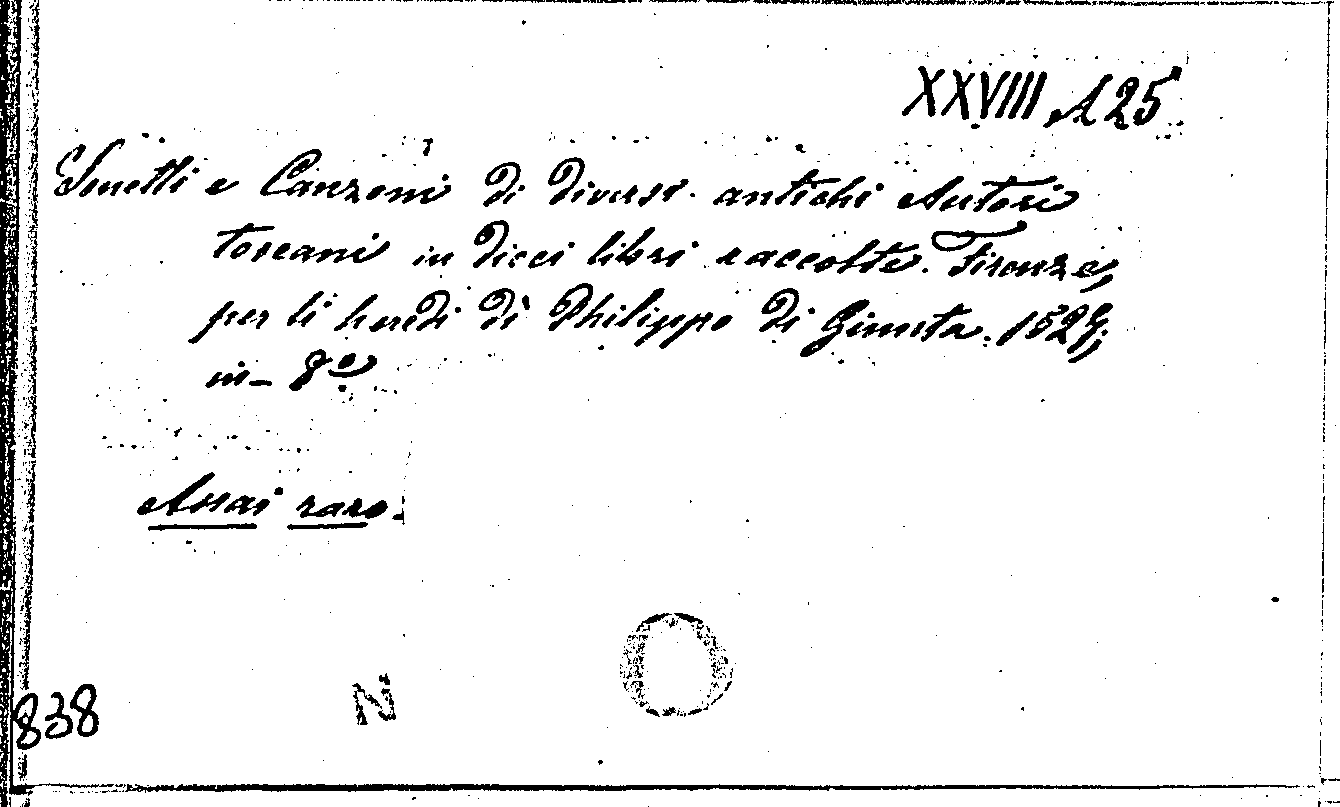 XXVIII A 25
Sonetti e Canzoni di diversi antichi Autori
toscani in dieci libri raccolte. Firenze,
per li heredi di Philippo di Giunta. 1527;
in-8º
Assai raro.
N
838